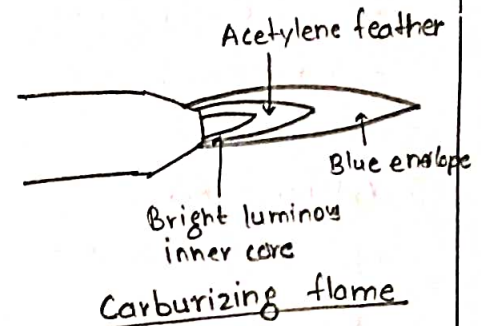 Acetylene feather
Blue envelope
Bright luminous
inner core
Carburizing flame